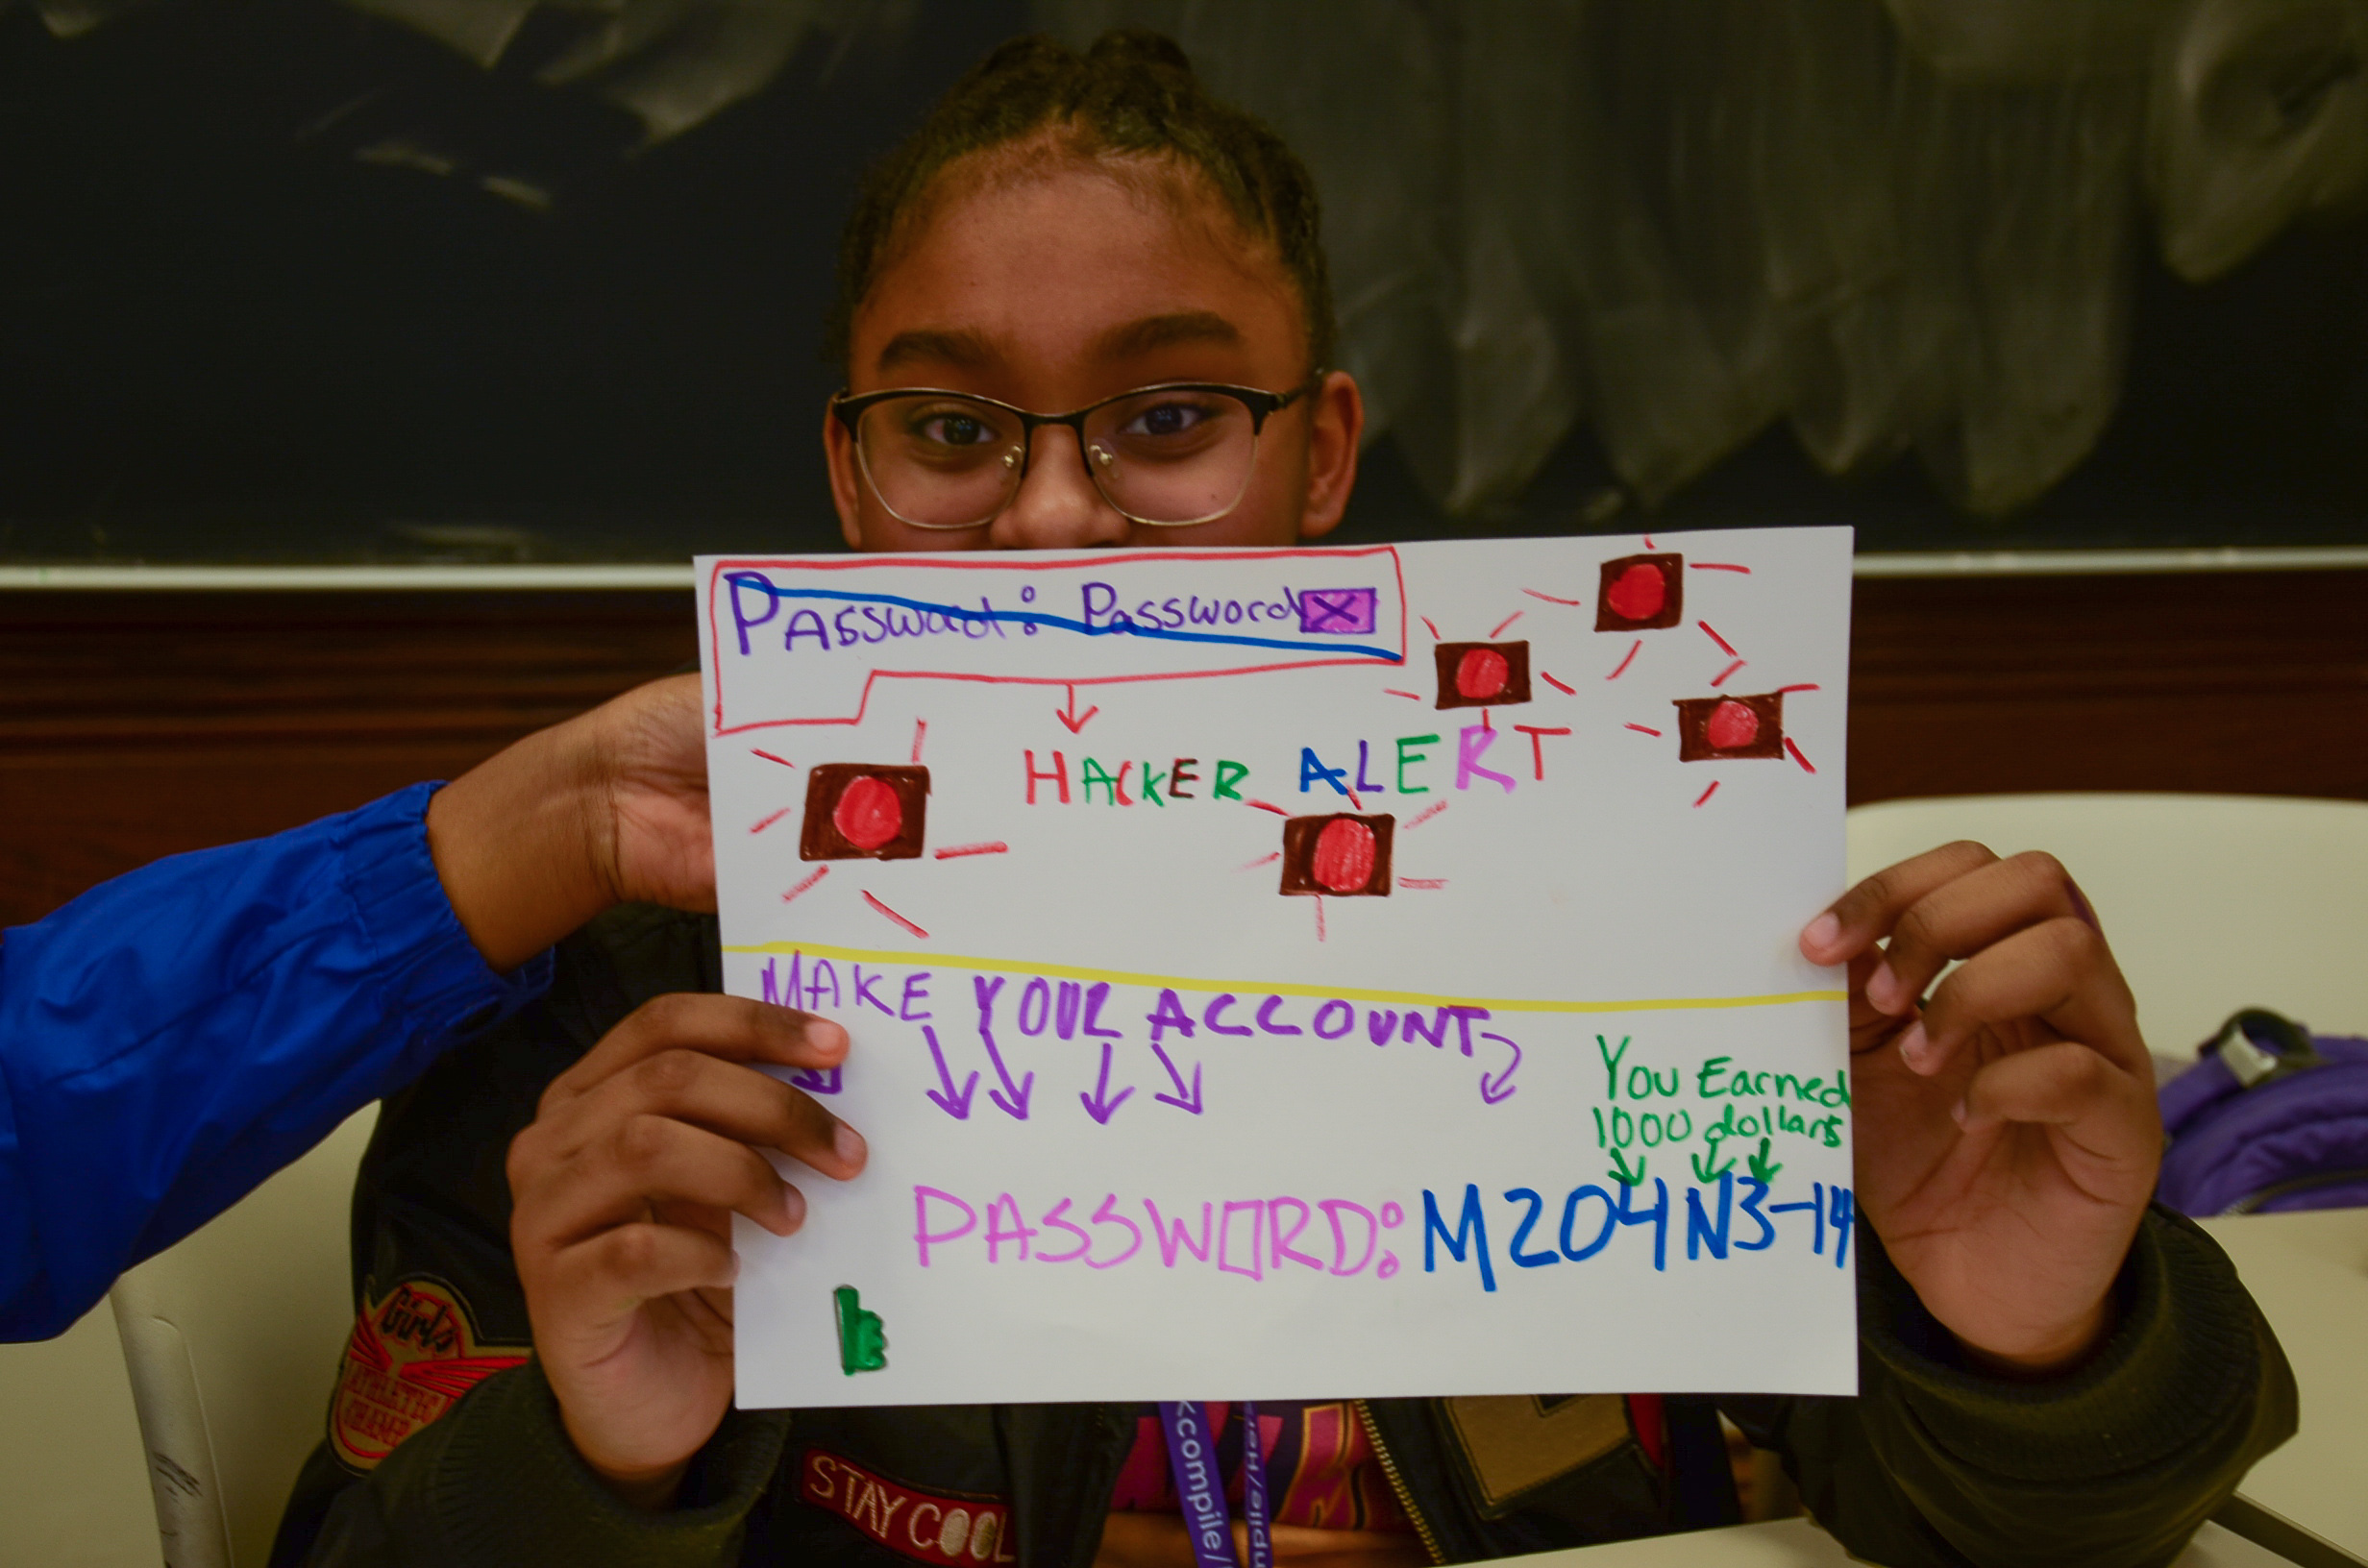 Password: Password
HACKER ALERT
MAKE YOUR ACCOUNT
You Earned
1000 dollars
PASSWORD: M204N3-14
Girls
ATHLETIC
CHAMP
STAY COOL
kcompile/